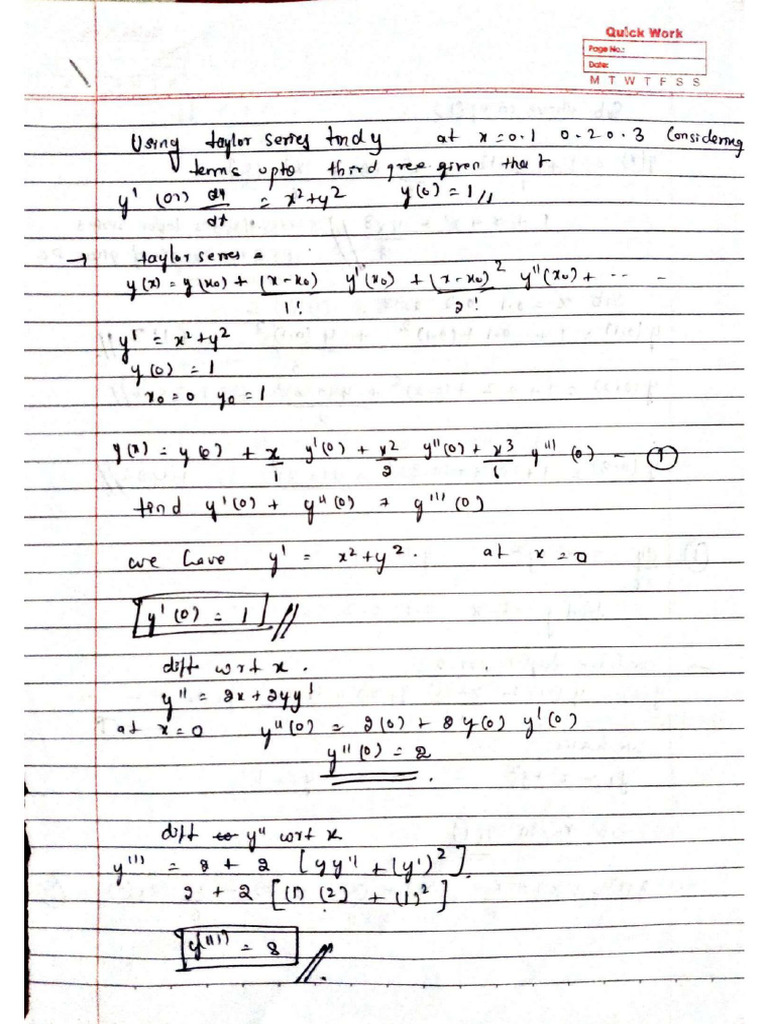 Quick Work
Page No.:
Date:
M T W T F S S
Using taylor series find y at x=0.1 0.2 0.3 Considering
terms upto third gree given that
y' (or) dy/dt = x²+y² y(0) = 1 //
→ taylor series =
y(x) = y(x₀) + (x-x₀)/1! y'(x₀) + (x-x₀)²/2! y''(x₀) + ... -
y' = x²+y²
y(0) = 1
x₀ = 0 y₀ = 1
y(x) = y(0) + x/1 y'(0) + x²/2 y''(0) + x³/6 y'''(0) - ①
find y'(0) + y''(0) + y'''(0)
we have y' = x²+y². at x = 0
y'(0) = 1 //
diff wrt x.
y'' = 2x+2yy'
at x=0 y''(0) = 2(0) + 2y(0) y'(0)
y''(0) = 2
diff y'' wrt x
y''' = 2 + 2 [yy'' + (y')²]
2 + 2 [(1) (2) + (1)²]
y(''') = 8 //